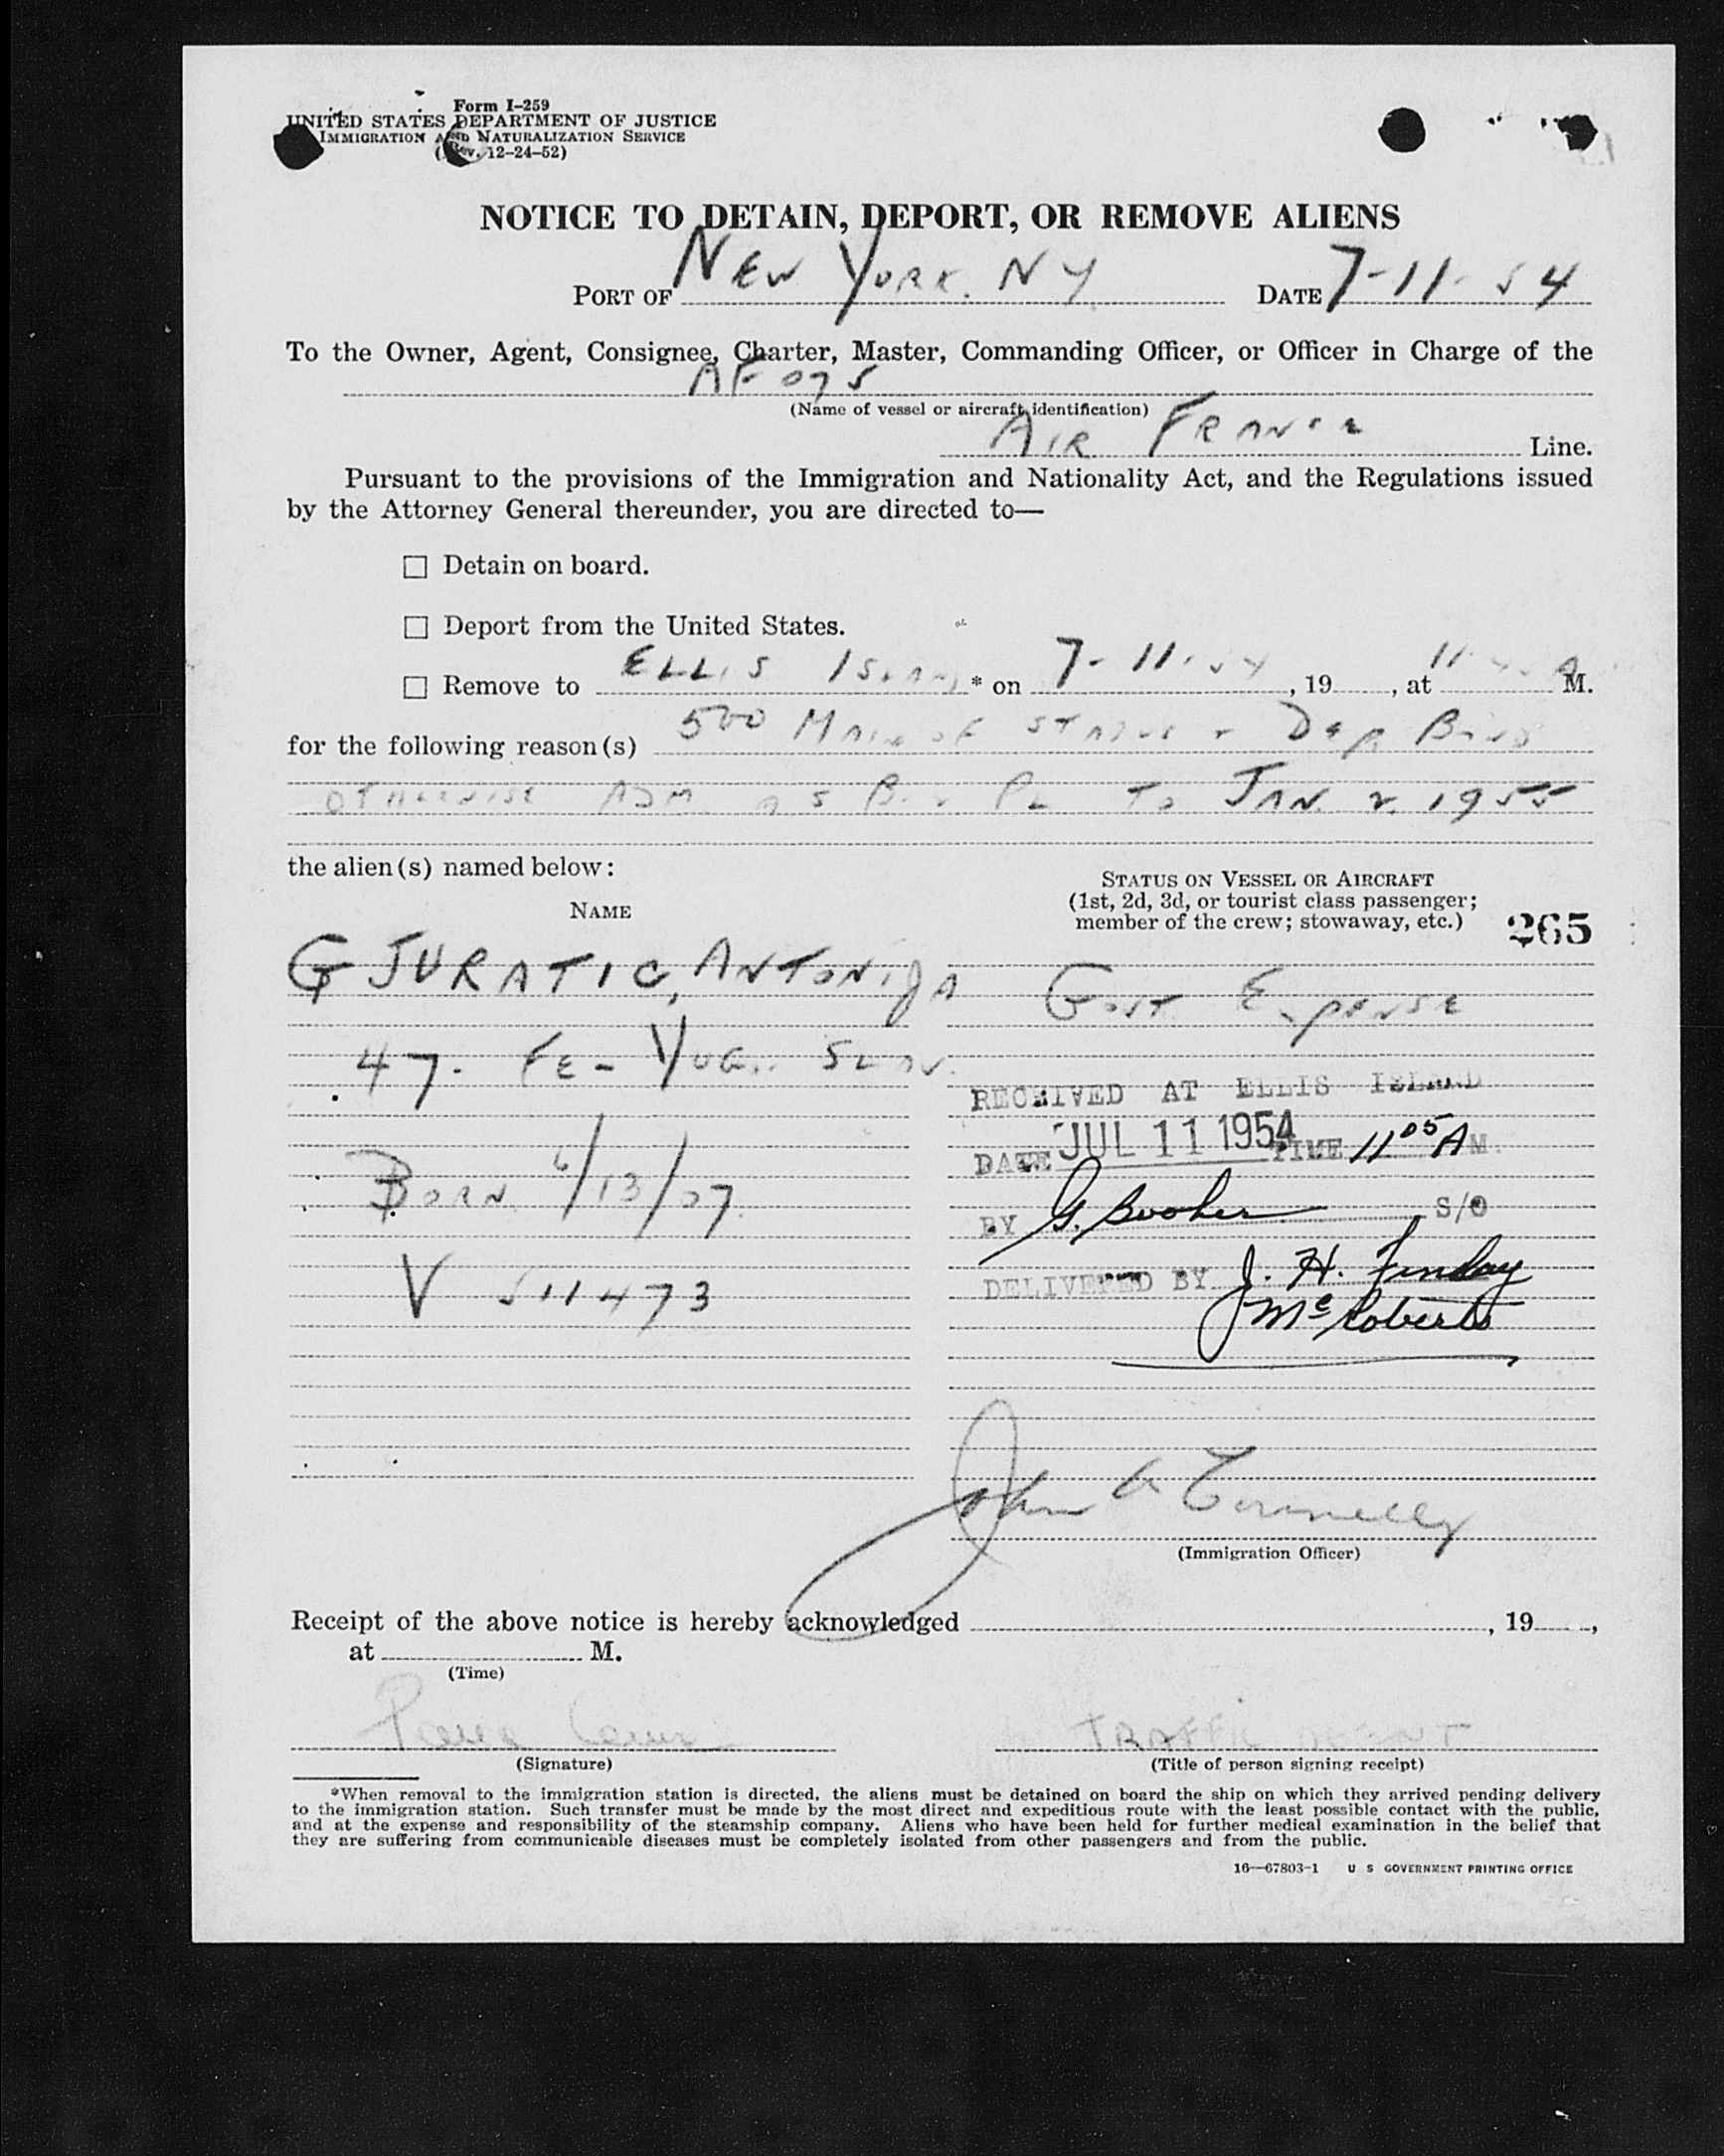 Form I-259
UNITED STATES DEPARTMENT OF JUSTICE
IMMIGRATION AND NATURALIZATION SERVICE
(Rev. 12-24-52)
NOTICE TO DETAIN, DEPORT, OR REMOVE ALIENS
PORT OF NEW YORK. NY DATE 7-11-54
To the Owner, Agent, Consignee, Charter, Master, Commanding Officer, or Officer in Charge of the
AF 075
(Name of vessel or aircraft identification)
AIR FRANCE Line.
Pursuant to the provisions of the Immigration and Nationality Act, and the Regulations issued
by the Attorney General thereunder, you are directed to—
☐ Detain on board.
☐ Deport from the United States.
☐ Remove to ELLIS ISLAND * on 7-11-54, 19, at 11 A M.
for the following reason(s) 500 MAIN OF STATUS + DEP BOND
OTHERWISE ADM AS B-2 PL TO JAN 2, 1955
the alien(s) named below:
STATUS ON VESSEL OR AIRCRAFT
(1st, 2d, 3d, or tourist class passenger;
member of the crew; stowaway, etc.)
NAME
265
GJURATIC, ANTONIJA
GOVT EXPENSE
47. FE - YUG. SLAV.
RECEIVED AT ELLIS ISLAND
DATE JUL 11 1954 TIME 11 05 A M.
BORN 6/13/07.
BY G. Booher S/O
V 511473
DELIVERED BY J. H. Finday
J McRoberts
John A Connelly
(Immigration Officer)
Receipt of the above notice is hereby acknowledged , 19 ,
at M.
(Time)
TRAFFIC AGENT
(Signature) (Title of person signing receipt)
*When removal to the immigration station is directed, the aliens must be detained on board the ship on which they arrived pending delivery
to the immigration station. Such transfer must be made by the most direct and expeditious route with the least possible contact with the public,
and at the expense and responsibility of the steamship company. Aliens who have been held for further medical examination in the belief that
they are suffering from communicable diseases must be completely isolated from other passengers and from the public.
16—67803-1 U S GOVERNMENT PRINTING OFFICE